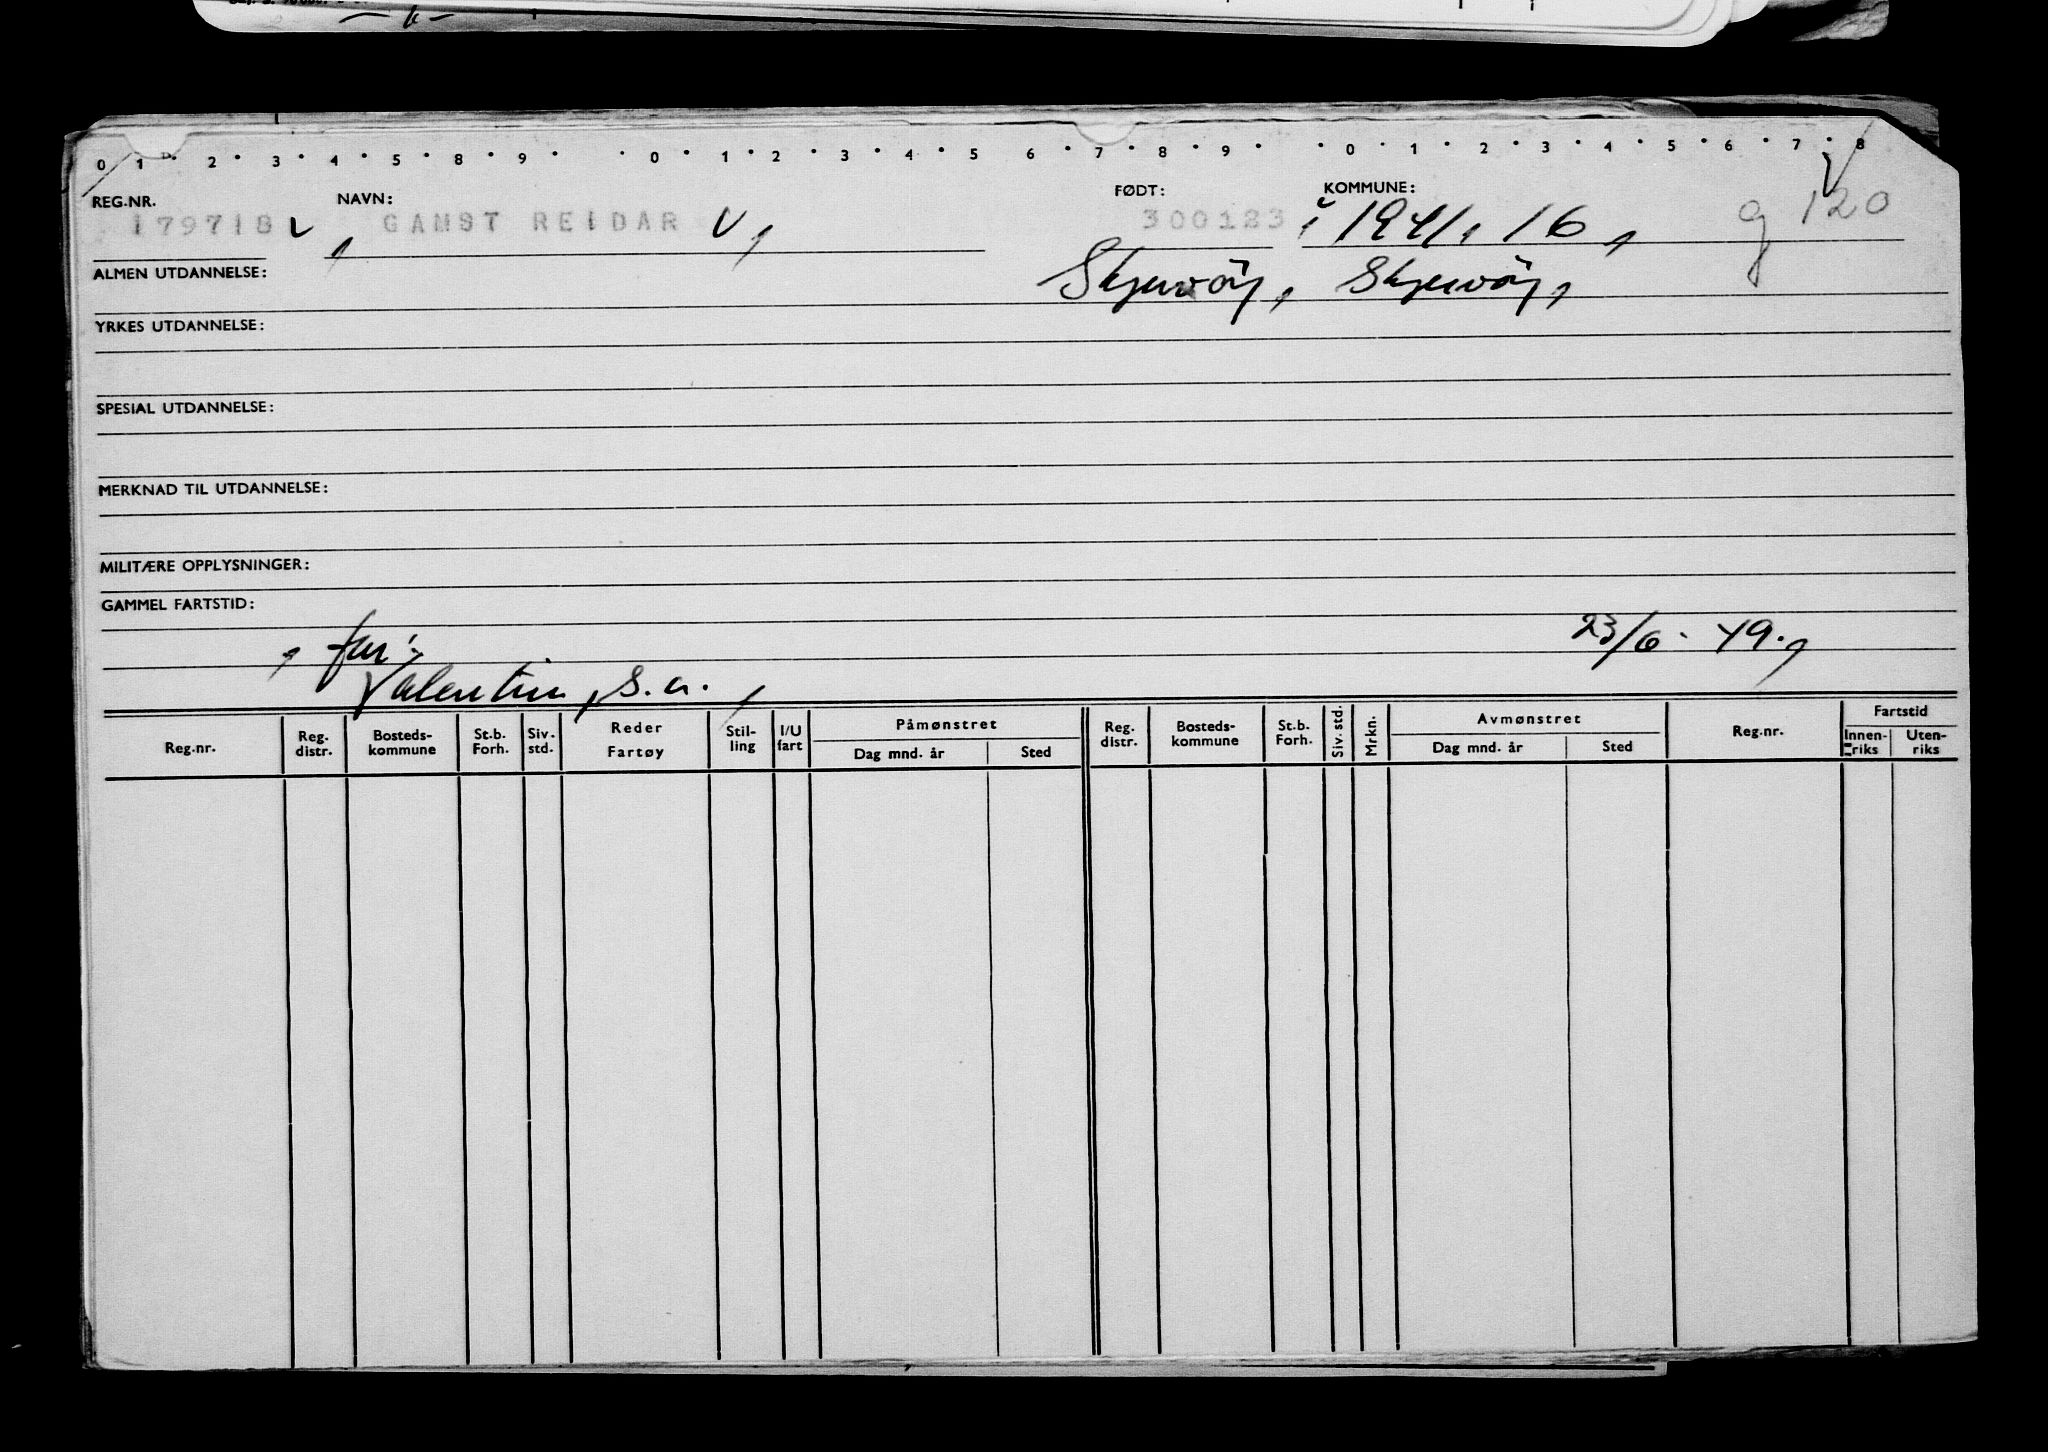 0 1 2 3 4 5 8 9 0 1 2 3 4 5 6 7 8 9 0 1 2 3 4 5 6 7 8
REG.NR. NAVN: FØDT: KOMMUNE:
179718 GAMST REIDAR 300123 1941, 16, g 120
ALMEN UTDANNELSE: Skjervöy, Skjervöy,
YRKES UTDANNELSE:
SPESIAL UTDANNELSE:
MERKNAD TIL UTDANNELSE:
MILITÆRE OPPLYSNINGER:
GAMMEL FARTSTID:
, far: 23/6. 49.,
Valentin, s.a.,
Reg.nr. Reg. distr. Bosteds-kommune St.b. Forh. Siv. std. Reder Fartøy Stil-ling I/U fart Påmønstret Dag mnd. år Sted Reg. distr. Bosteds-kommune St.b. Forh. Siv. std. Mrkn. Avmønstret Dag mnd. år Sted Reg.nr. Fartstid Innen-riks Uten-riks